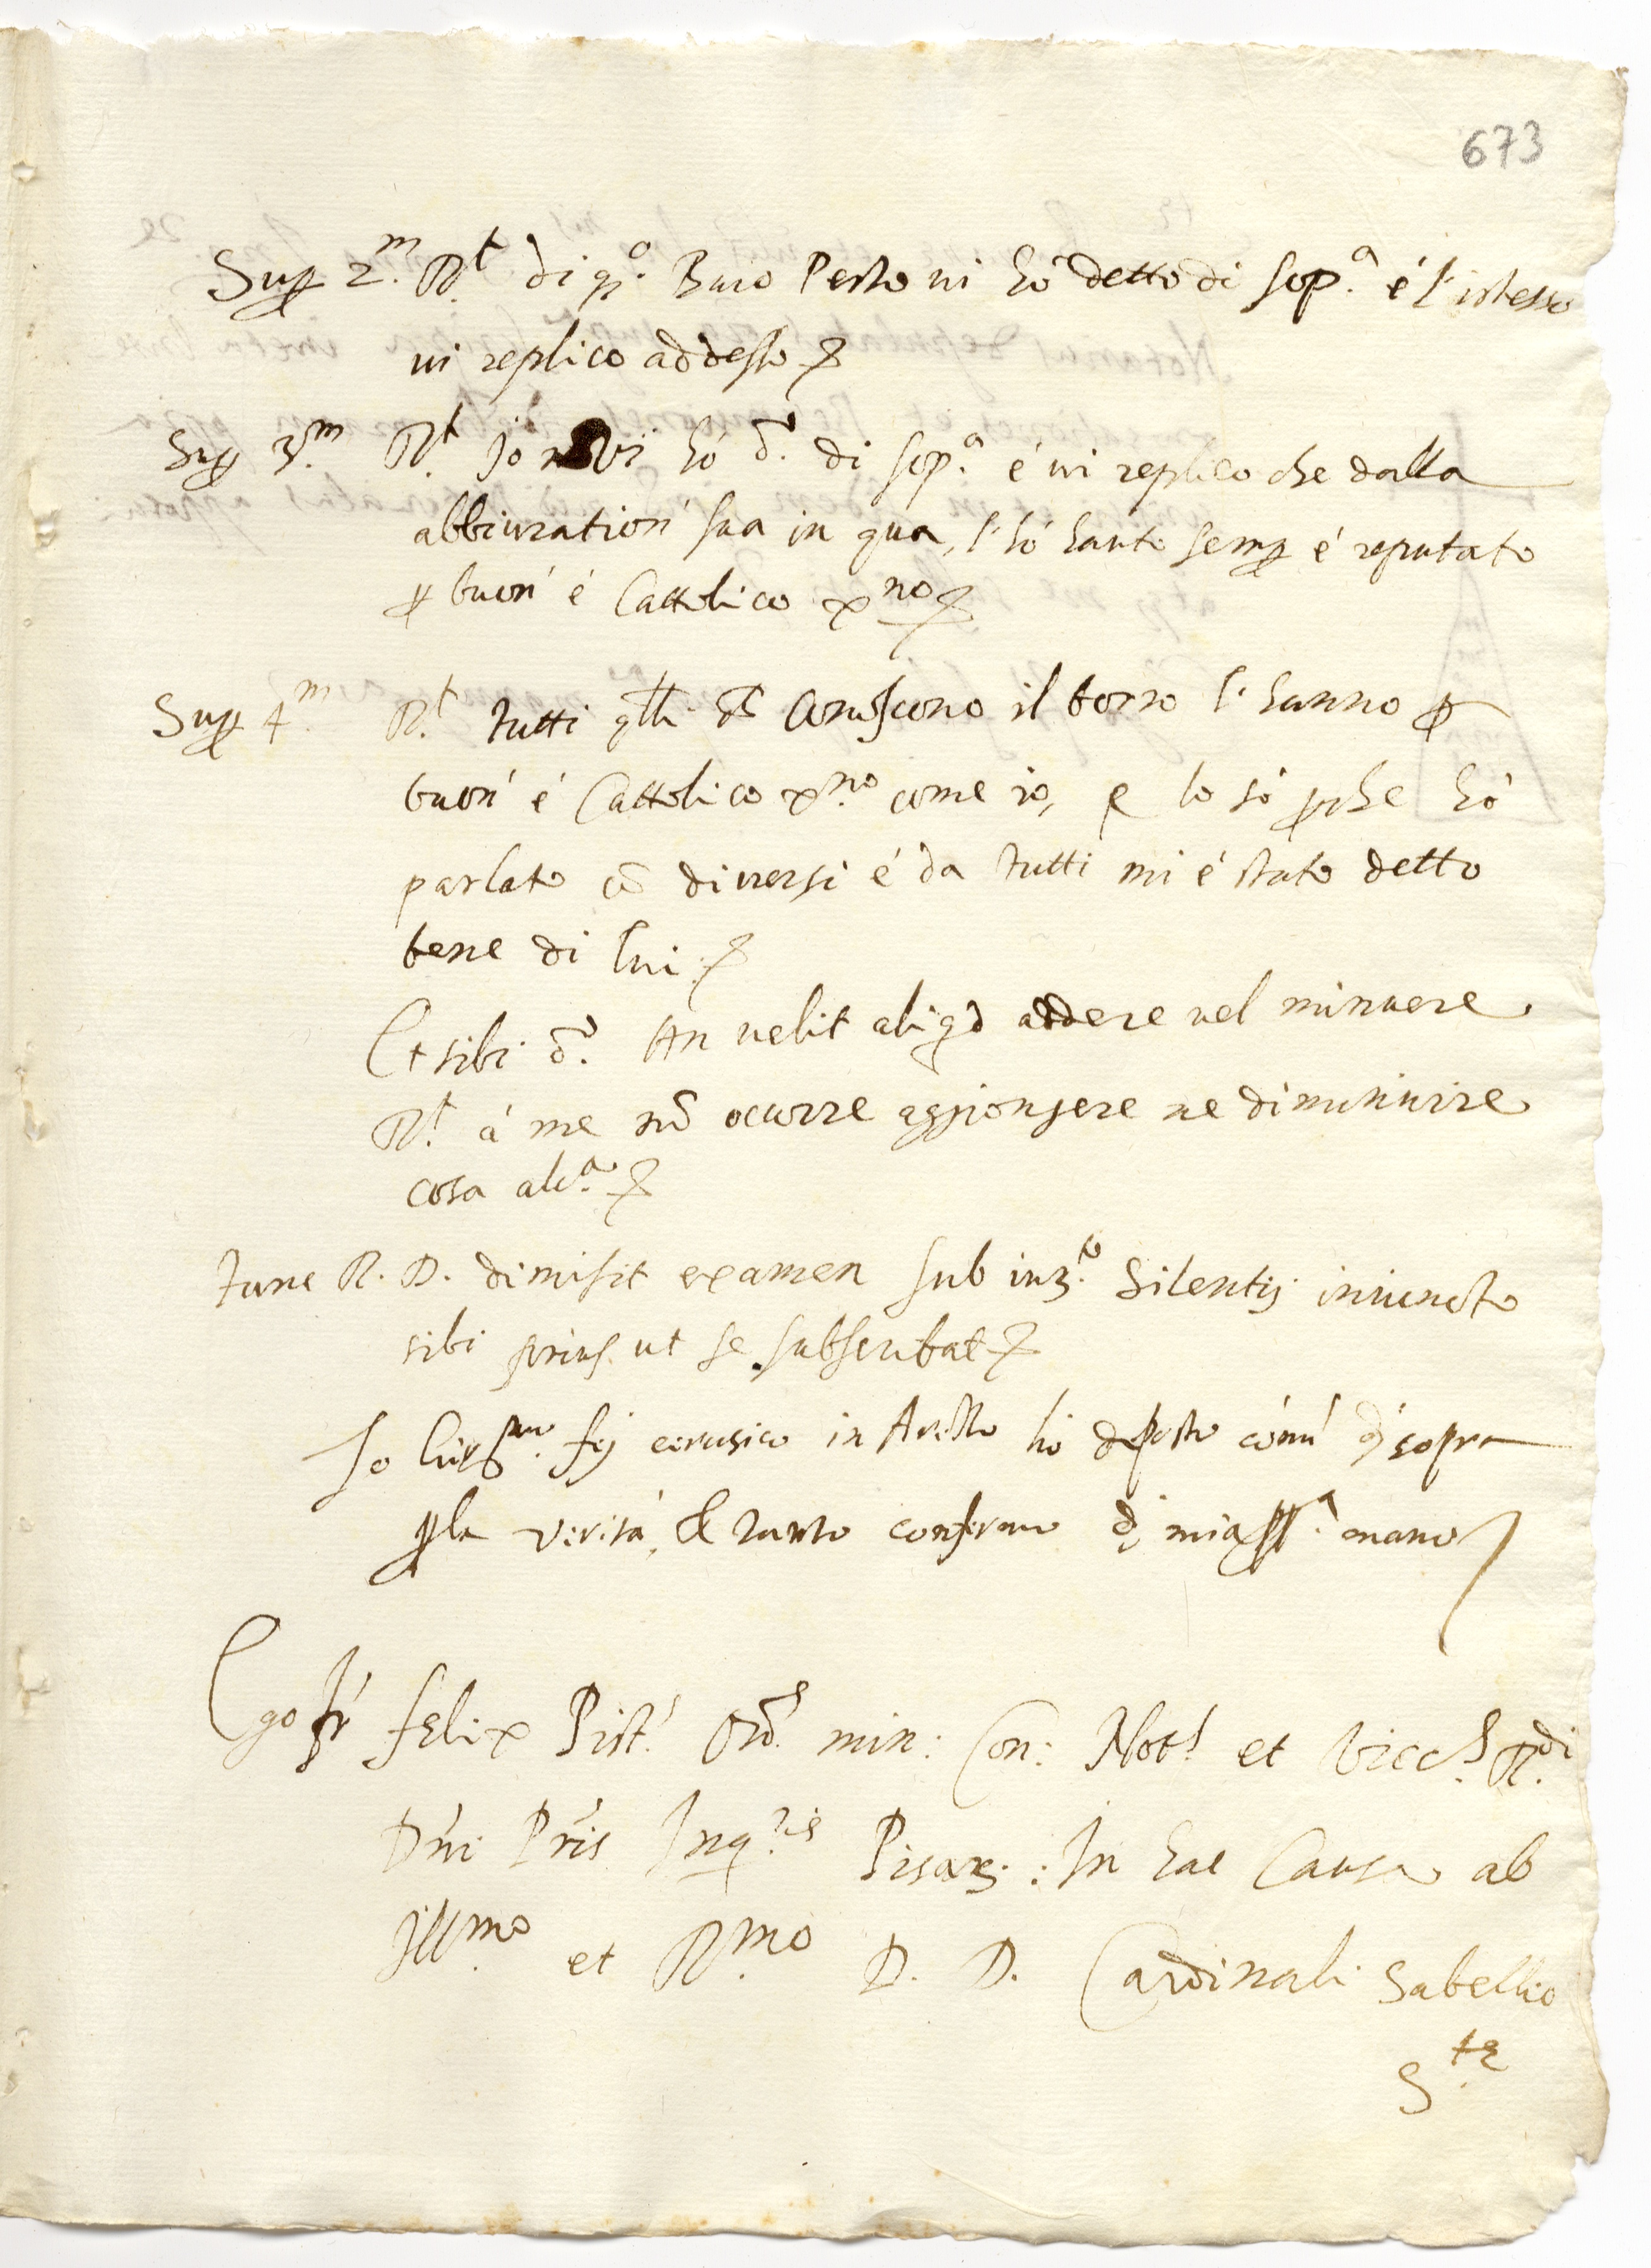 673
Sup 2.m R.t di q.o Buio Pesto vi hò detto di sop.a é l'istesso
vi replico addesso
Sup 3.m R.t Jo vi hò d. di sop.a é vi replico che dalla
abbiuration' sua in qua, l'hò hauto semp é reputato
p buon' é Cattolico xno
Sup 4.m R.t tutti qlli conoscono il torso l'hanno p
buon' é Cattolico x.no come io, e lo só pche hó
parlato cō diversi é da tutti mi é stato detto
bene di lui
Et sibi d. An velit aliqd addere vel minuere
R.t á me nō ocurre aggiongere ne diminuire
cosa alc.a
Tunc R. D. dimisit examen sub iur.to Silentij iniuncto
sibi prius ut se subscribat
Jo fej cerusico in ho deposto sopra
pla verità, & tanto confermo d mia pp.a mano
Ego fr' felix Pist.' Ord.s min: Con: Not.s et Vicc.s R.di
Dn'i Pr'is Inq.ris Pisar: In hac Causa ab
Ill.mo et R.mo D. D. Cardinali Sabellio
S.te